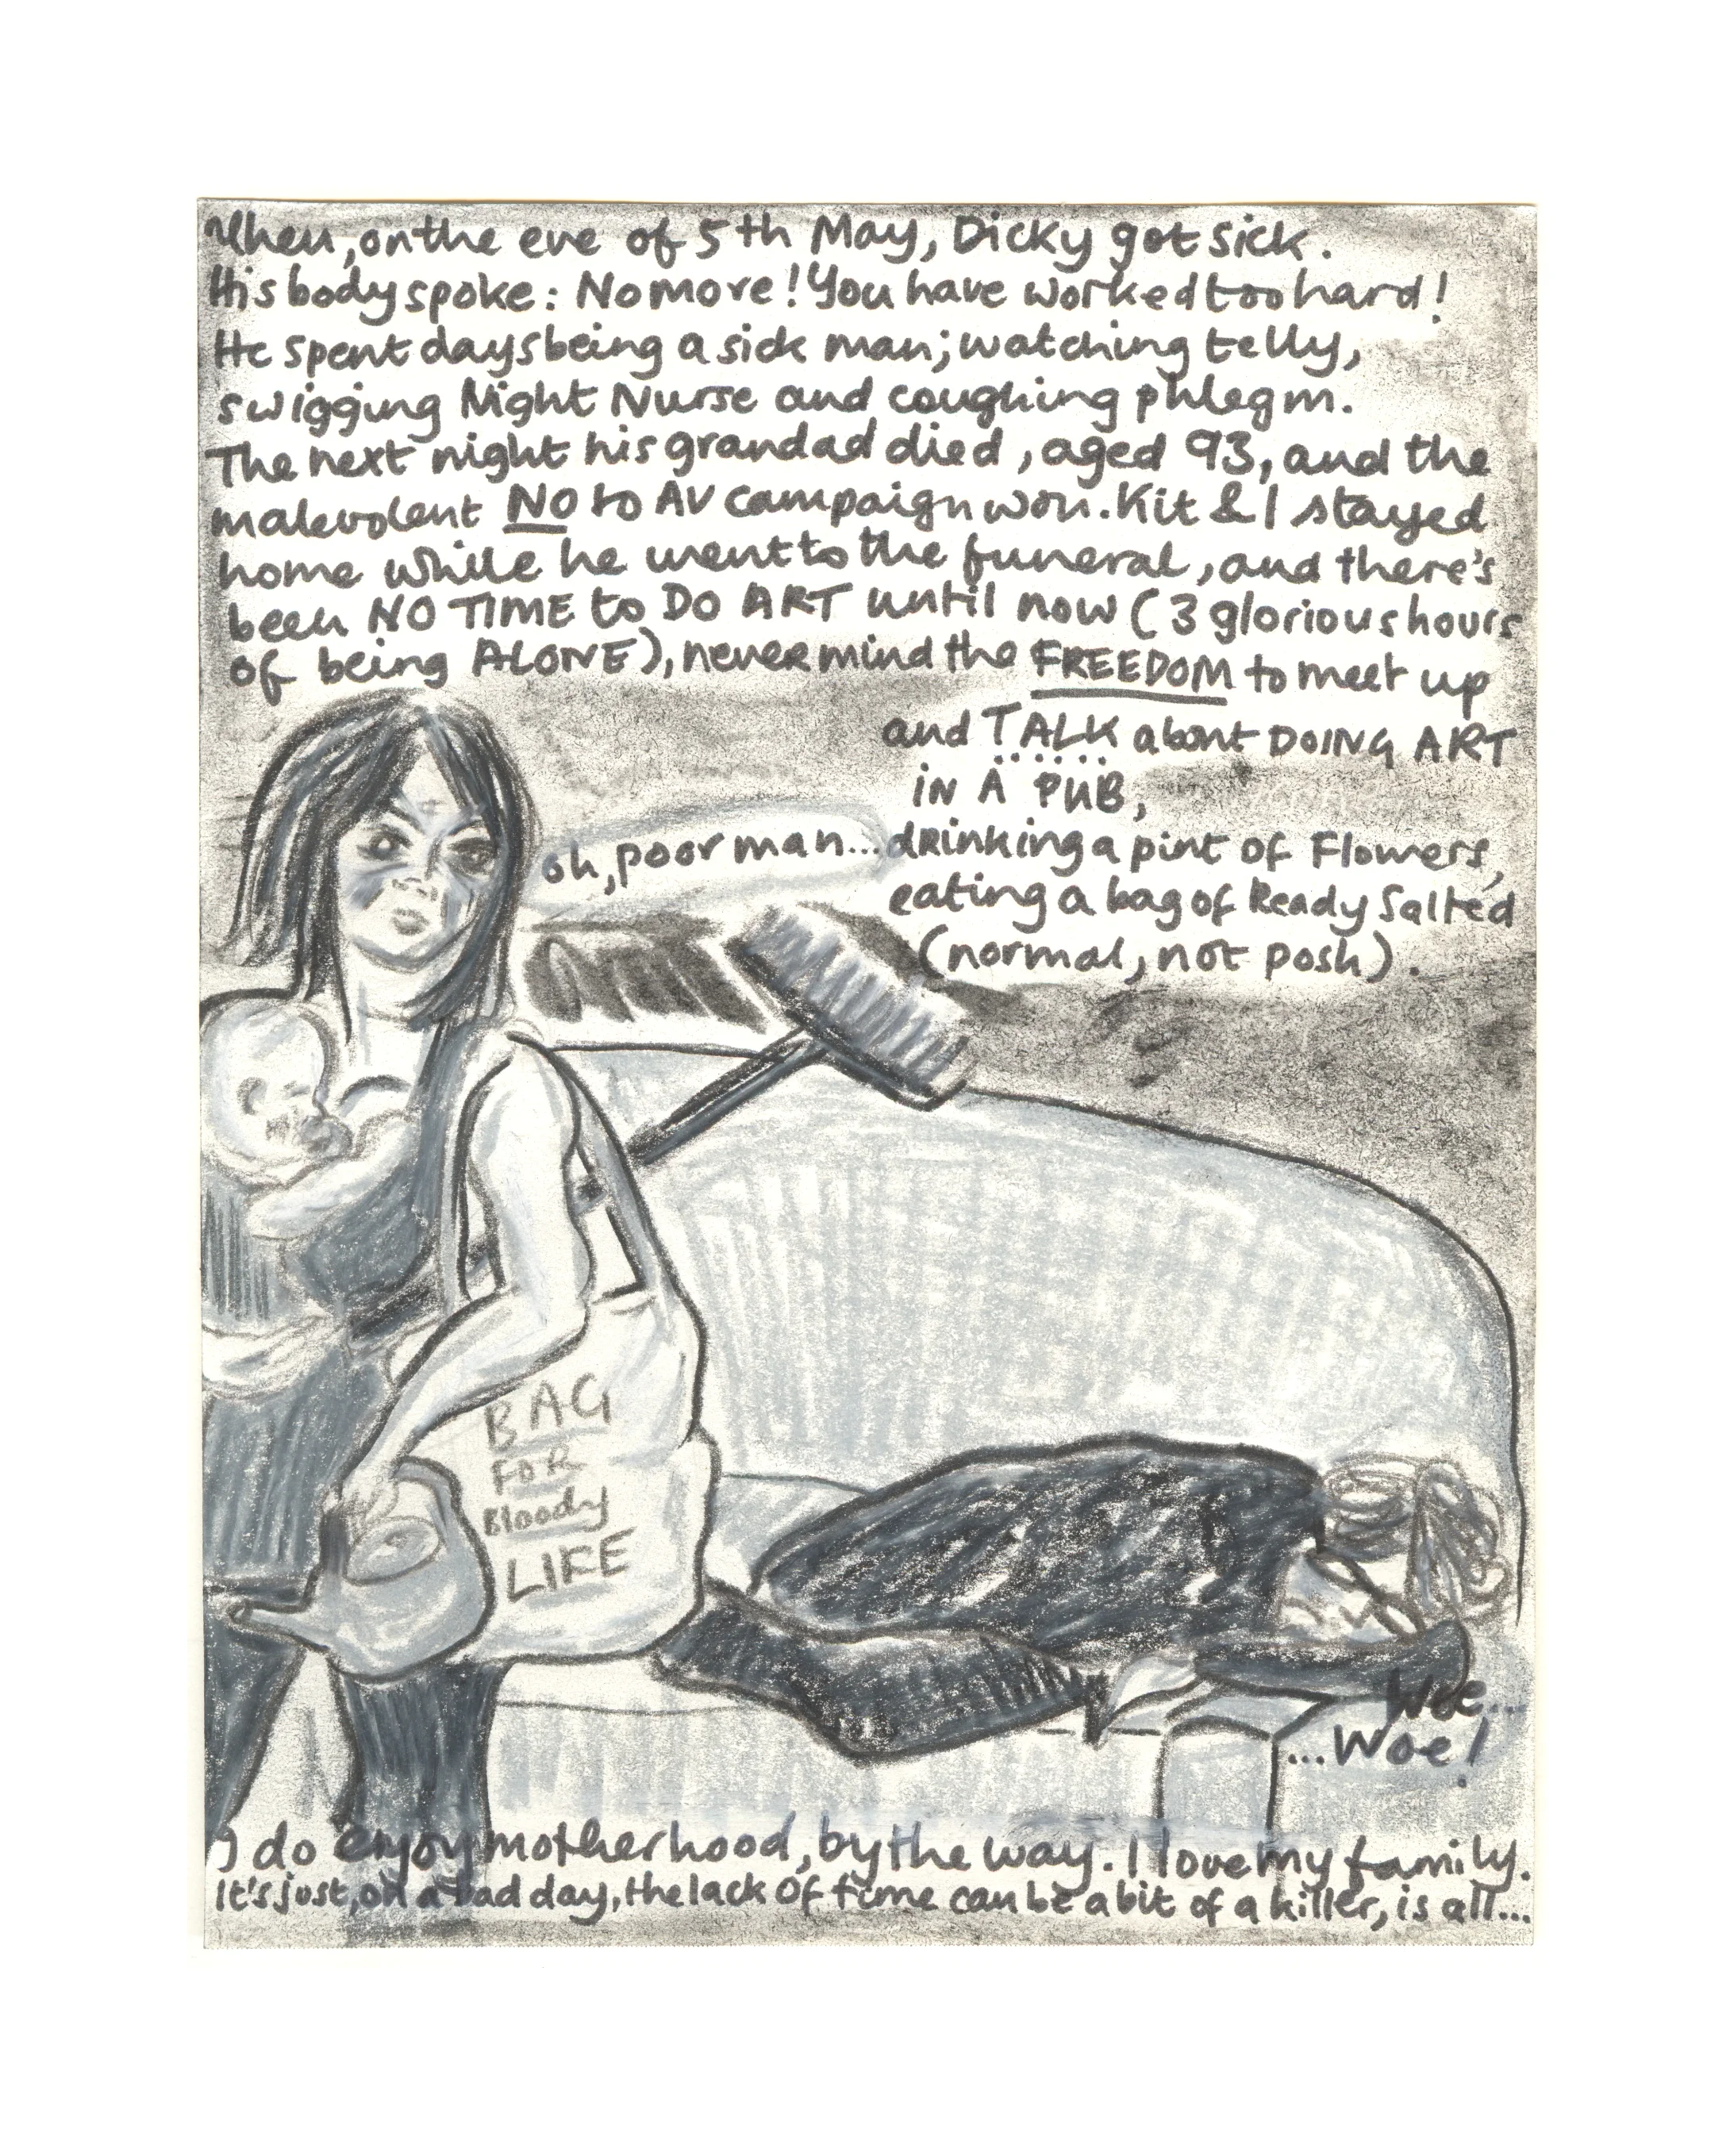 Then, on the eve of 5th May, Dicky got sick.
His body spoke: No more! You have worked too hard!
He spent days being a sick man; watching telly,
swigging Night Nurse and coughing phlegm.
The next night his grandad died, aged 93, and the
malevolent NO to AV campaign won. Kit & I stayed
home while he went to the funeral, and there's
been NO TIME to DO ART until now (3 glorious hours
of being ALONE), never mind the FREEDOM to meet up
and TALK about DOING ART
IN A PUB,
oh, poor man...
drinking a pint of Flowers,
eating a bag of Ready Salted
(normal, not posh).
BAG
FOR
Bloody
LIFE
Woe...
...Woe!
I do enjoy motherhood, by the way. I love my family.
It's just, on a bad day, the lack of time can be a bit of a killer, is all...